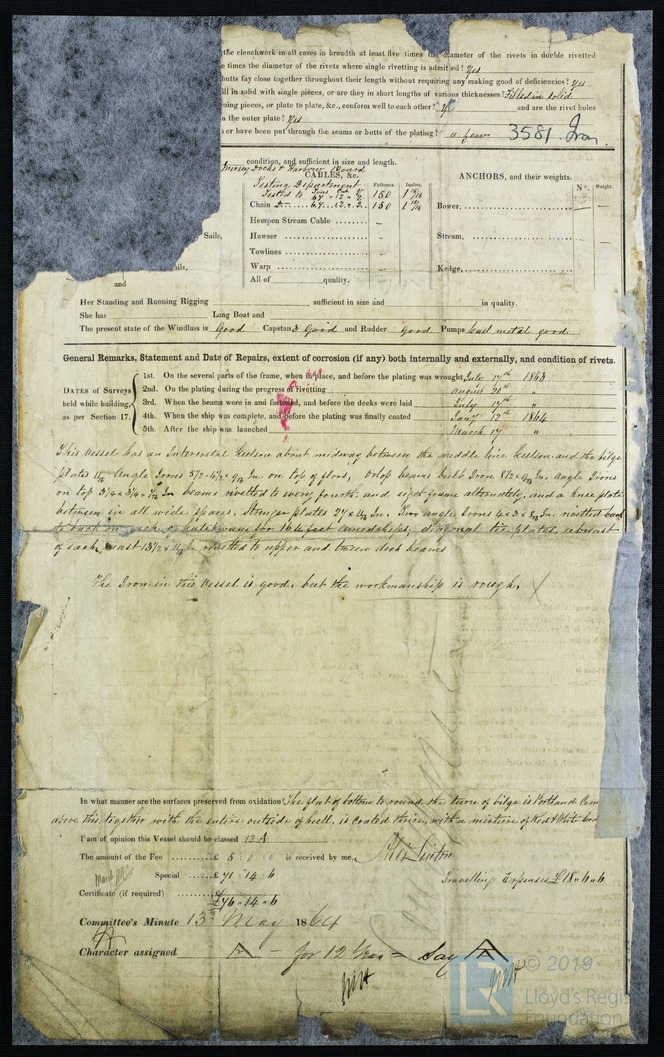 the clenchwork in all cases in breadth at least five times the diameter of the rivets in double rivetted
times the diameter of the rivets where single rivetting is admitted? Yes
butts fay close together throughout their length without requiring any making good of deficiencies? Yes
ill in solid with single pieces, or are they in short lengths of various thicknesses? Filled in solid
ning pieces, or plate to plate, &c., conform well to each other? Yes and are the rivet holes
n the outer plate? Yes
or have been put through the seams or butts of the plating? a few 3581 Iron
condition, and sufficient in size and length.
Mersey Docks & Harbour Board
CABLES, &c. Fathoms. Inches. ANCHORS, and their weights.
Testing Department Nº. Weight.
Tested to Tons Cwt
67 - 12 - 2 150
Chain Do 67 - 12 - 2 150 Bower,
Hempen Stream Cable
Sails, Hawser Stream,
Towlines
ails, Warp Kedge,
and All of quality.
Her Standing and Running Rigging sufficient in size and in quality.
She has Long Boat and
The present state of the Windlass is Good Capstan & Good and Rudder Good Pumps Cast metal good
General Remarks, Statement and Date of Repairs, extent of corrosion (if any) both internally and externally, and condition of rivets.
DATES of Surveys held while building, as per Section 17.
1st. On the several parts of the frame, when in place, and before the plating was wrought July 17th 1863
2nd. On the plating during the progress of rivetting August 20th "
3rd. When the beams were in and fastened, and before the decks were laid July 17th "
4th. When the ship was complete, and before the plating was finally coated Jany 12th 1864
5th. After the ship was launched March 17 "
This Vessel has an Intercostal Keelson about midway between the middle line Keelson and the bilge
plates Angle Irons on top of floors, Orlop beams bulb Iron In. Angle Irons
on top In beams rivetted to every fourth and eight frame alternately, and a knee plate
between in all wide spaces, Stringer plates In. Two angle Irons In. rivetted back
to back on each for 164 feet amidships, diagonal tie plates abreast
of each mast In rivetted to upper and tween deck beams
The Iron in this Vessel is good, but the workmanship is rough.
In what manner are the surfaces preserved from oxidation? The flat of bottom to round the turn of bilge is Portland Cem
above this together with the entire outside of hull, is coated thrice, with a mixture of Red & White lead
I am of opinion this Vessel should be classed 12 A
The amount of the Fee £ 5 : 0 : 0 is received by me,
Special £71 : 14 : 6 Travelling Expenses £18 . 6 . 6
Certificate (if required) £76 . 14 . 6
Committee's Minute 13th May 1864
Character assigned A - for 12 Years = Say A
© 2019
LR
Lloyd's Regis
Foundation